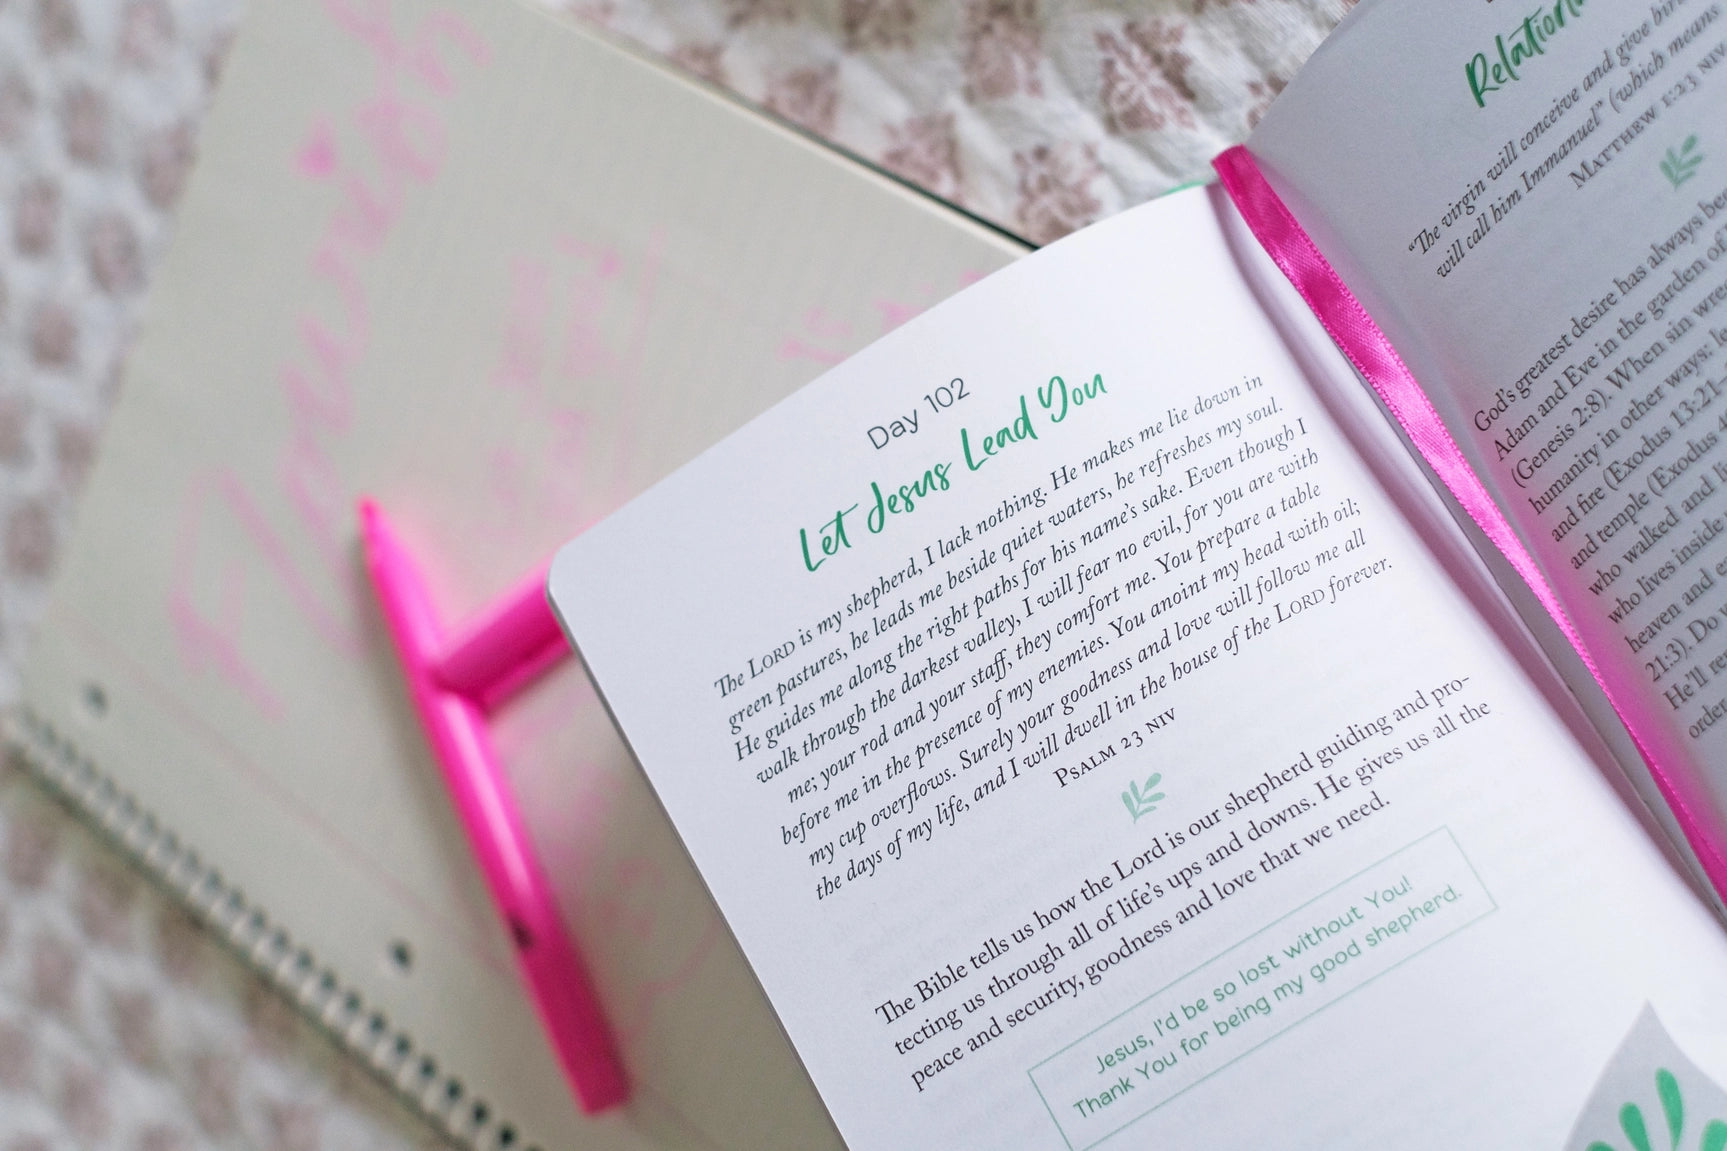 Day 102
Let Jesus Lead You
The LORD is my shepherd, I lack nothing. He makes me lie down in
green pastures, he leads me beside quiet waters, he refreshes my soul.
He guides me along the right paths for his name's sake. Even though I
walk through the darkest valley, I will fear no evil, for you are with
me; your rod and your staff, they comfort me. You prepare a table
before me in the presence of my enemies. You anoint my head with oil;
my cup overflows. Surely your goodness and love will follow me all
the days of my life, and I will dwell in the house of the LORD forever.
PSALM 23 NIV
The Bible tells us how the Lord is our shepherd guiding and pro-
tecting us through all of life's ups and downs. He gives us all the
peace and security, goodness and love that we need.
Jesus, I'd be so lost without You!
Thank You for being my good shepherd.
"The virgin will conceive and give
will call him Immanuel" (which means
MATTHEW 1:23 NIV
God's greatest desire has always
Adam and Eve in the garden of
(Genesis 2:8). When sin
humanity in other ways:
and fire (Exodus 13:21–
and temple (Exodus
who walked and
who lives inside
heaven and
21:3). Do
He'll